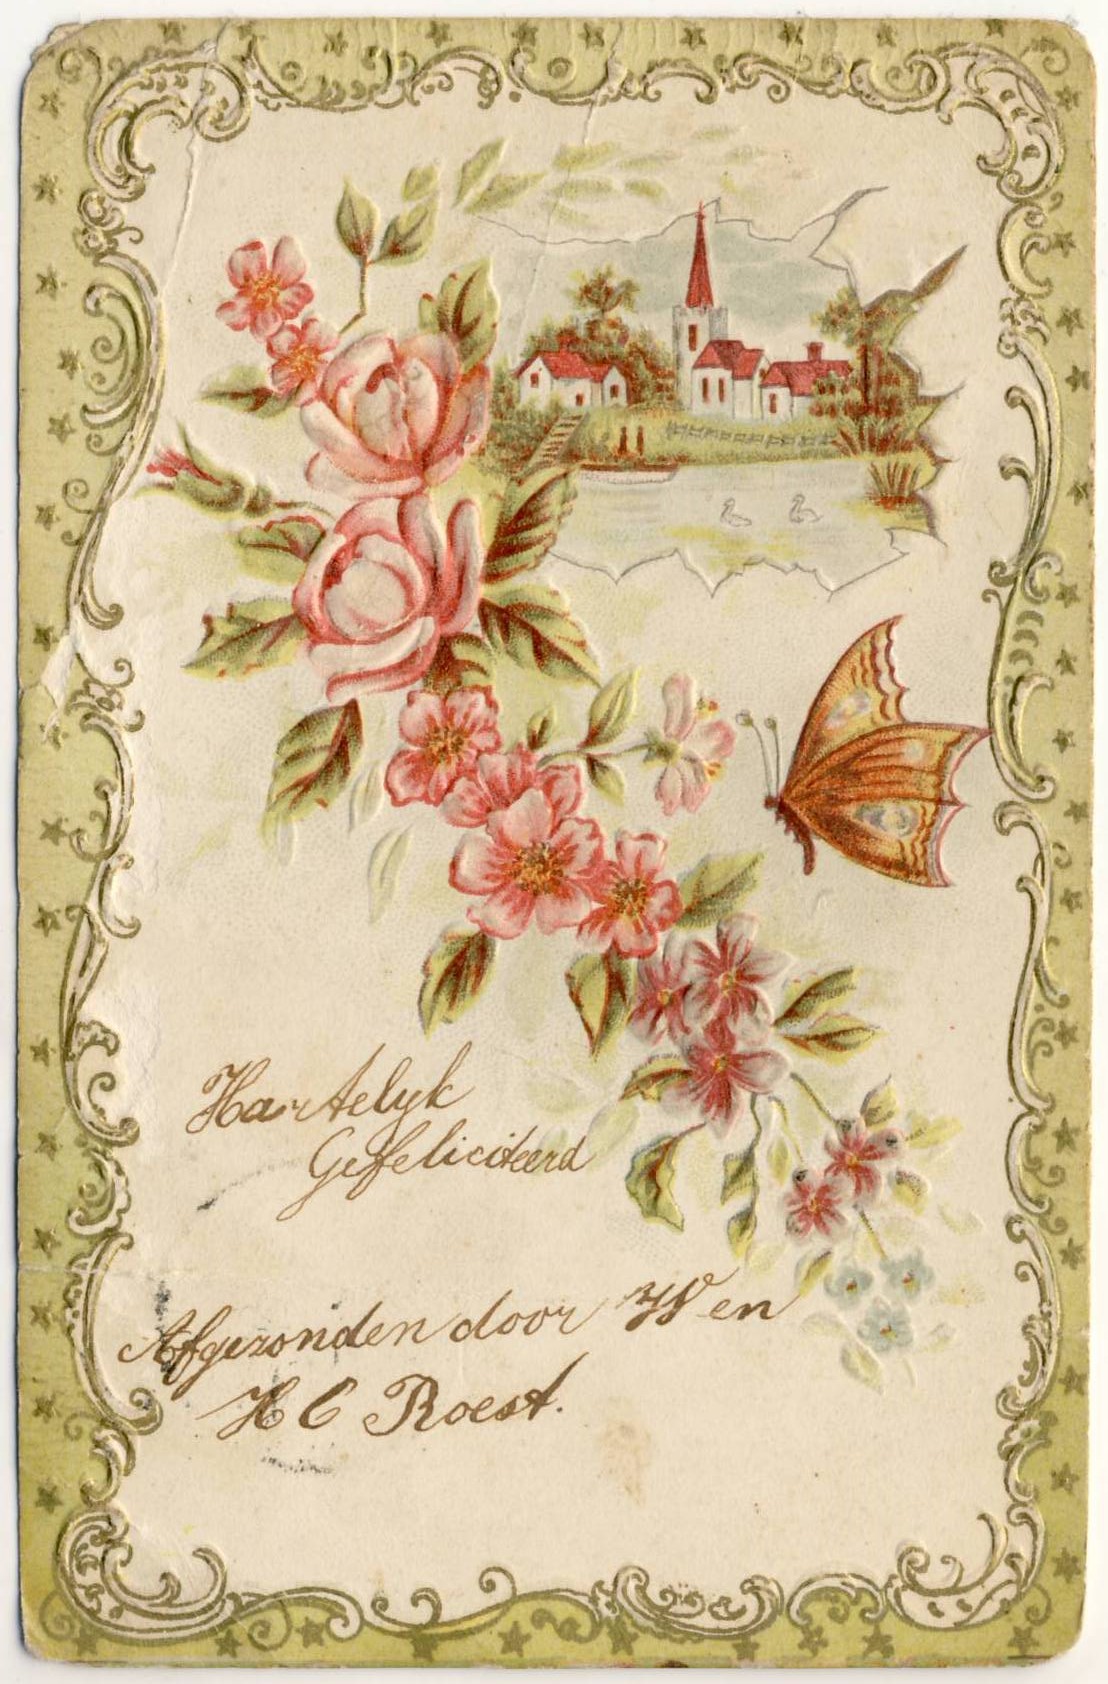 Hartelyk
Gefeliciteerd
Afgezonden door W en
H C Roest.